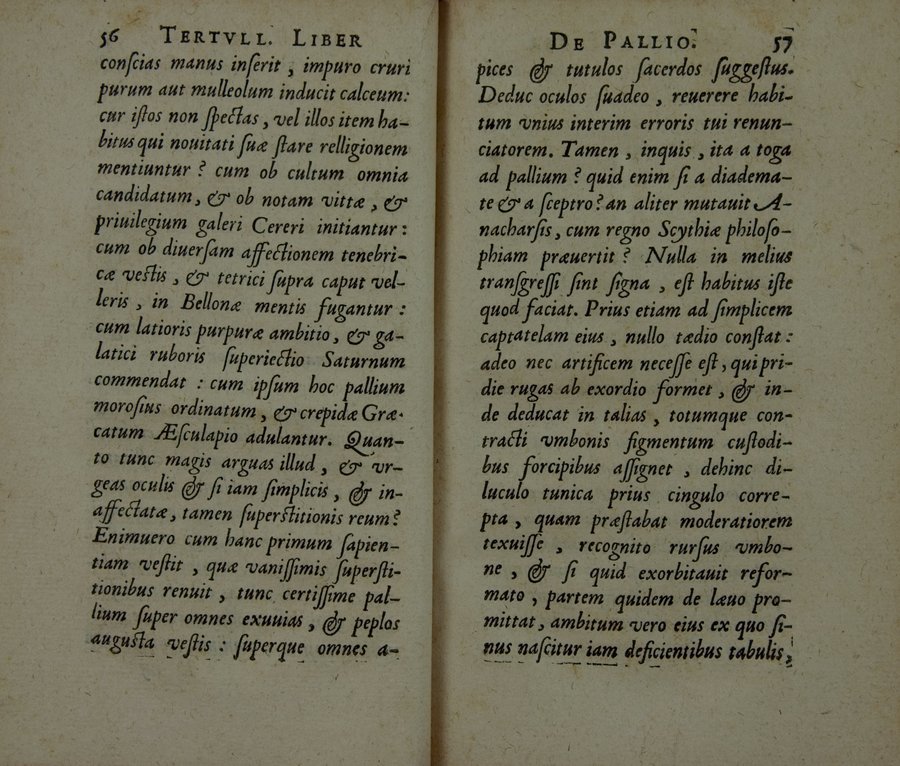 56 TERTVLL. LIBER
conſcias manus inſerit, impuro cruri
purum aut mulleolum inducit calceum:
cur iſtos non ſpectas, vel illos item ha-
bitus qui nouitati ſuæ ſtare relligionem
mentiuntur? cum ob cultum omnia
candidatum, & ob notam vittæ, &
priuilegium galeri Cereri initiantur:
cum ob diuerſam affectionem tenebri-
cæ veſtis, & tetrici ſupra caput vel-
leris, in Bellonæ mentis fugantur:
cum latioris purpuræ ambitio, & ga-
latici ruboris ſuperiectio Saturnum
commendat: cum ipſum hoc pallium
moroſius ordinatum, & crepidæ Græ-
catum Æſculapio adulantur. Quan-
to tunc magis arguas illud, & vr-
geas oculis & ſi iam ſimplicis, & in-
affectatæ, tamen ſuperſtitionis reum?
Enimuero cum hanc primum ſapien-
tiam veſtit, quæ vaniſſimis ſuperſti-
tionibus renuit, tunc certiſſime pal-
lium ſuper omnes exuuias, & peplos
auguſta veſtis: ſuperque omnes a-
DE PALLIO. 57
pices & tutulos ſacerdos ſuggeſtus.
Deduc oculos ſuadeo, reuerere habi-
tum vnius interim erroris tui renun-
ciatorem. Tamen, inquis, ita a toga
ad pallium? quid enim ſi a diadema-
te & a ſceptro? an aliter mutauit A-
nacharſis, cum regno Scythiæ philoſo-
phiam præuertit? Nulla in melius
tranſgreſſi ſint ſigna, eſt habitus iſte
quod faciat. Prius etiam ad ſimplicem
captatelam eius, nullo tædio conſtat:
adeo nec artificem neceſſe eſt, qui pri-
die rugas ab exordio formet, & in-
de deducat in talias, totumque con-
tracti vmbonis figmentum cuſtodi-
bus forcipibus aſſignet, dehinc di-
luculo tunica prius cingulo corre-
pta, quam præſtabat moderatiorem
texuiſſe, recognito rurſus vmbo-
ne, & ſi quid exorbitauit refor-
mato, partem quidem de læuo pro-
mittat, ambitum vero eius ex quo ſi-
nus naſcitur iam deficientibus tabulis,